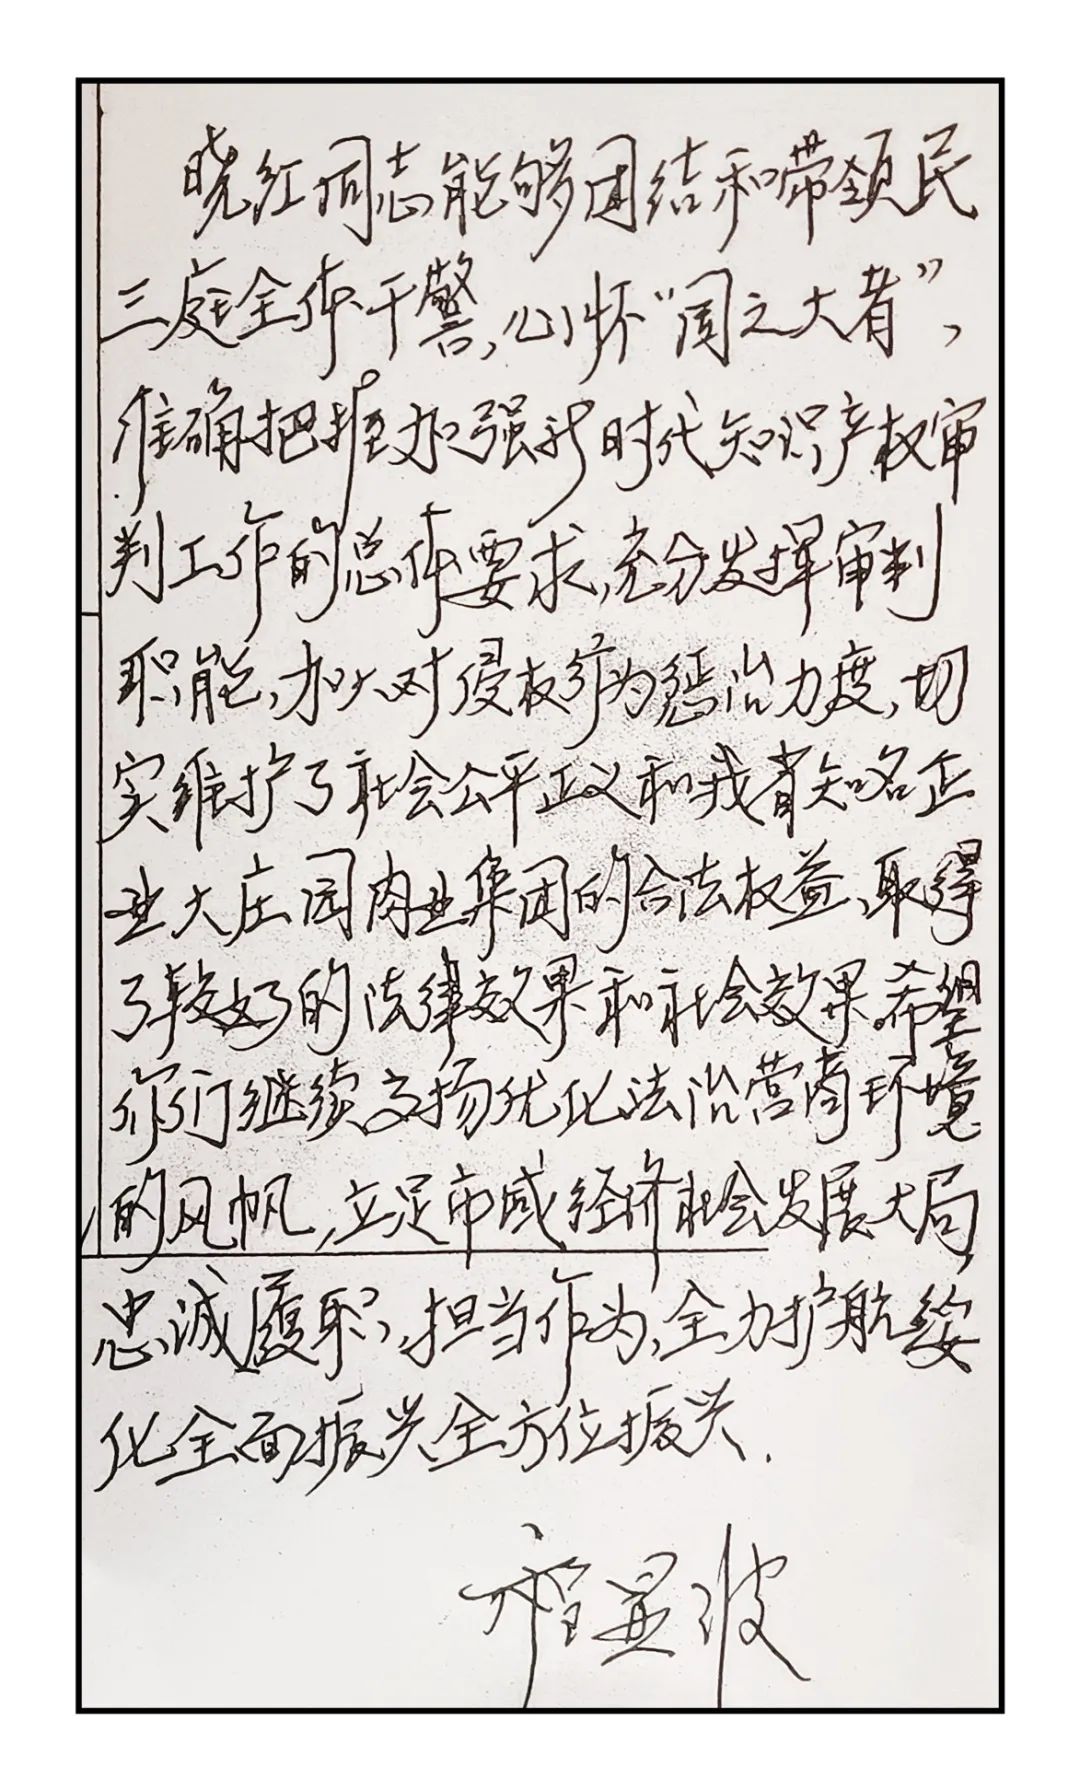 晓红同志能够团结和带领民
三庭全体干警,心怀“国之大者”,
准确把握加强新时代知识产权审
判工作的总体要求,充分发挥审判
职能,加大对侵权行为惩治力度,切
实维护了社会公平正义和我省知名企
业大庄园肉业集团的合法权益,取得
了较好的法律效果和社会效果.希望
你们继续高扬优化法治营商环境
的风帆,立足市域经济社会发展大局,
忠诚履职,担当作为,全力护航绥
化全面振兴全方位振兴.
显波